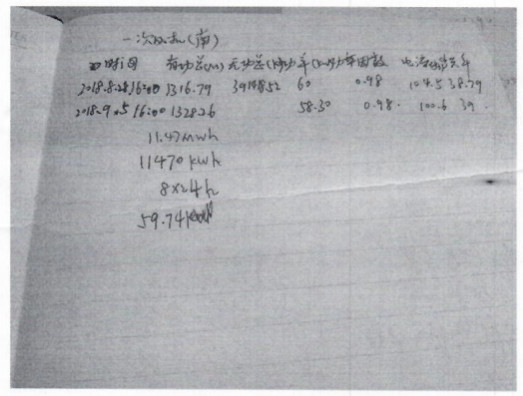 一次风机(南)
时间 有功总(M) 无功总 功率(kw) 功率因数 电流 频率
2018.8.28 16:00 1316.79 60 0.98 104.5 38.79
2018.9.5 16:00 1328.26 58.30 0.98. 100.6 39.
11.47mwh
11470kwh
8×24h
59.74